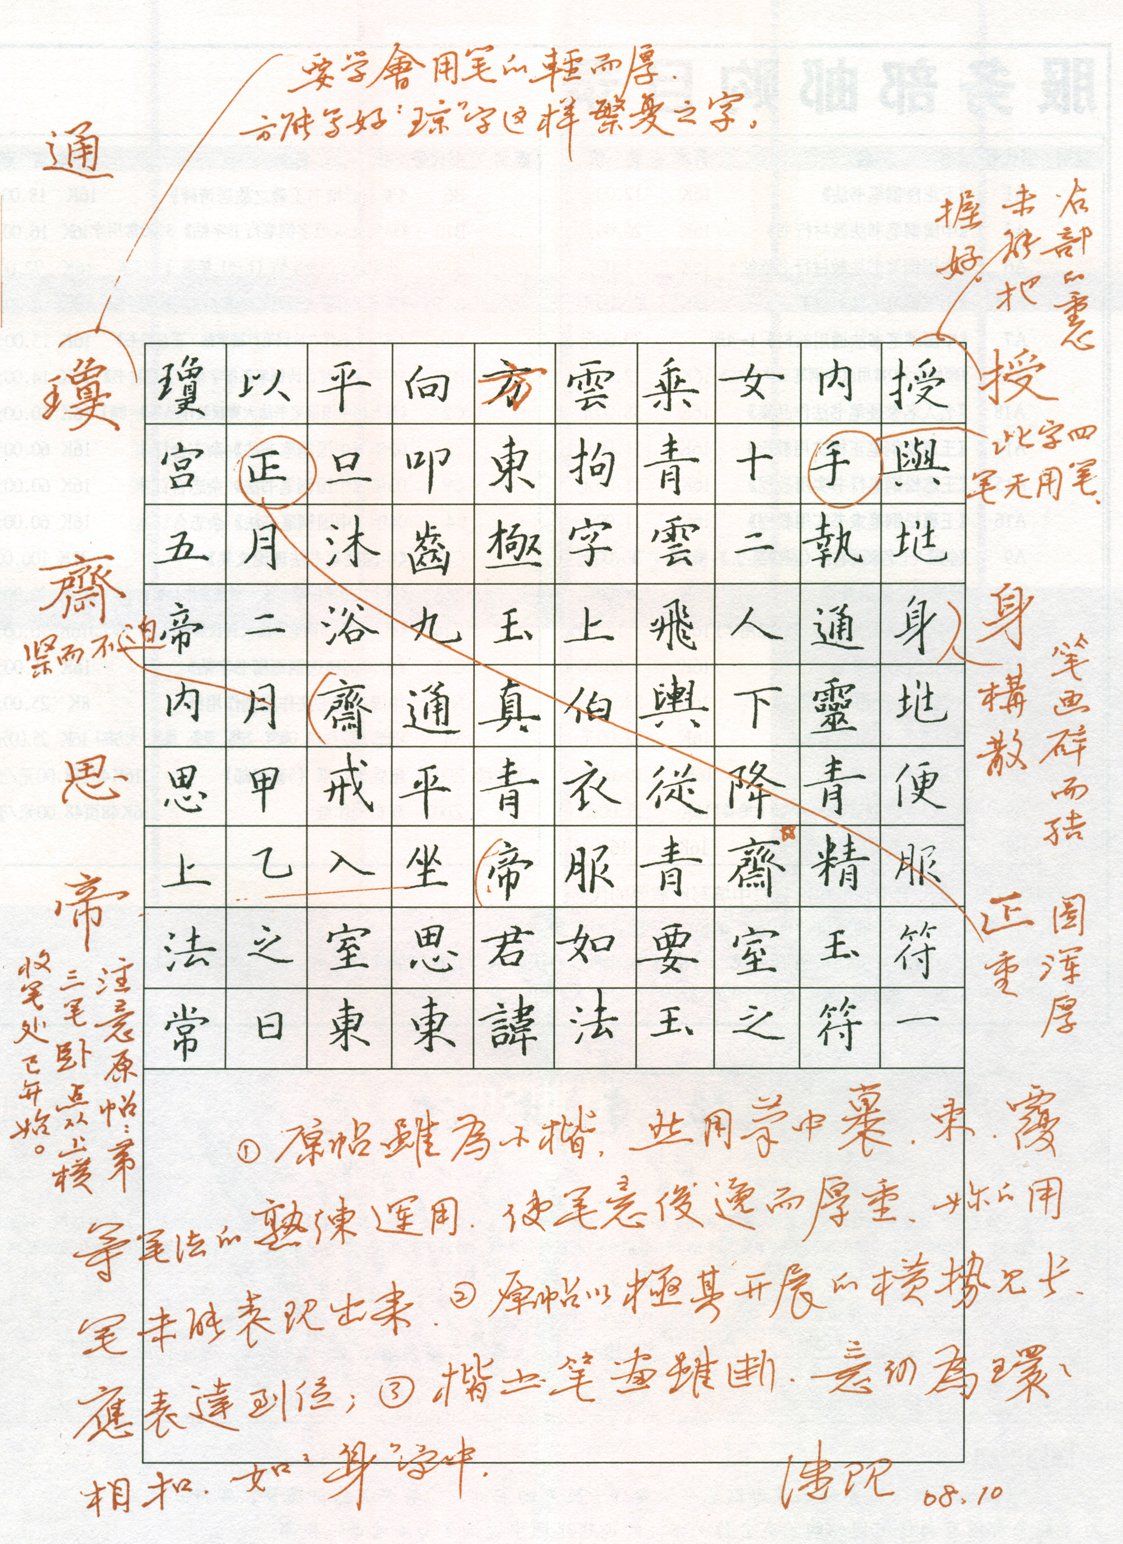 要学會用笔的輕而厚.
方能写好“琼”字这样繁复之字。
通
右部的重心
未能把
握好.
授
此字四
笔无用笔.
身
笔画碎而结
構散
正
圆浑厚
重
瓊
齋
紧而不迫
思
帝
注意原帖:第
三笔卧点从上横
收笔处已开始。
授與地身地便服符一
内手執通靈青精玉符
女十二人下降齋室之
乘青雲飛輿從青要玉
雲拘字上伯衣服如法
方東極玉真青帝君諱
向叩齒九通平坐思東
平旦沐浴齋戒入室東
以正月二月甲乙之日
瓊宮五帝内思上法常
①原帖雖為小楷.然用筆中裹.束.覆
等笔法的熟練運用.使笔意俊逸而厚重.妳的用
笔未能表现出来.②原帖以極其开展的横势见长.
應表達到位;③楷书筆画雖断.意仍為環環
相扣.如“身”字中.
08.10